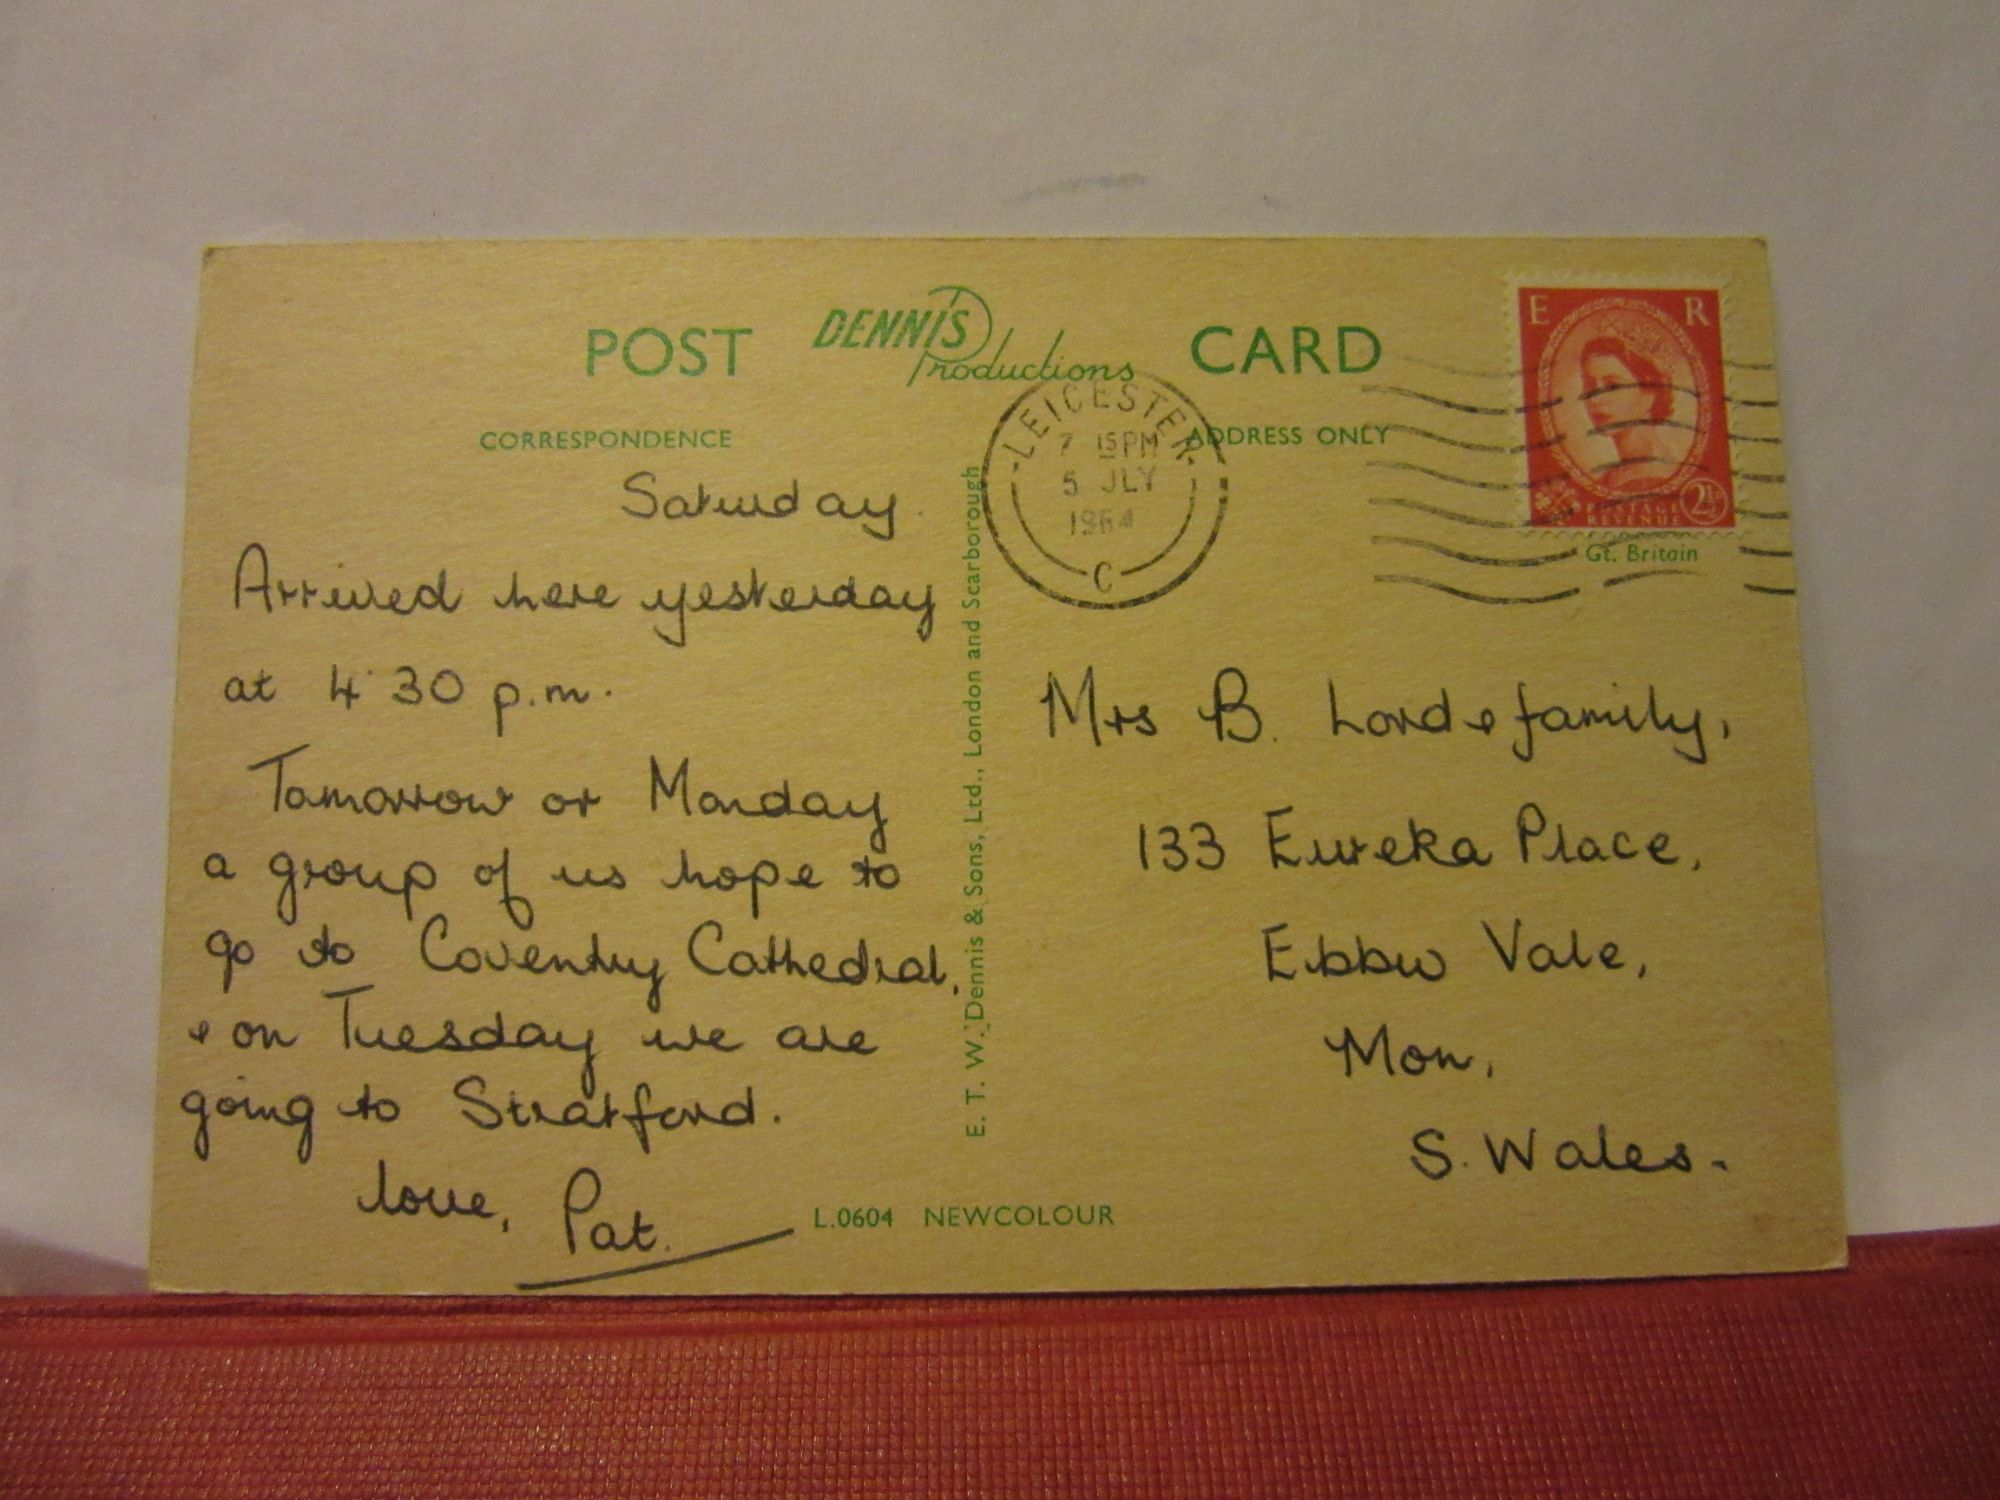 POST DENNIS Productions CARD
CORRESPONDENCE
Saturday.
Arrived here yesterday
at 4.30 p.m.
Tomorrow or Monday
a group of us hope to
go to Coventry Cathedral,
& on Tuesday we are
going to Stratford.
love, Pat.
E. T. W. Dennis & Sons, Ltd., London and Scarborough
L.0604 NEWCOLOUR
LEICESTER
7 15PM
5 JLY
1964
C
ADDRESS ONLY
E R
POSTAGE
REVENUE
2½D
Gt. Britain
Mrs B. Lord & family,
133 Eureka Place,
Ebbw Vale,
Mon,
S. Wales.